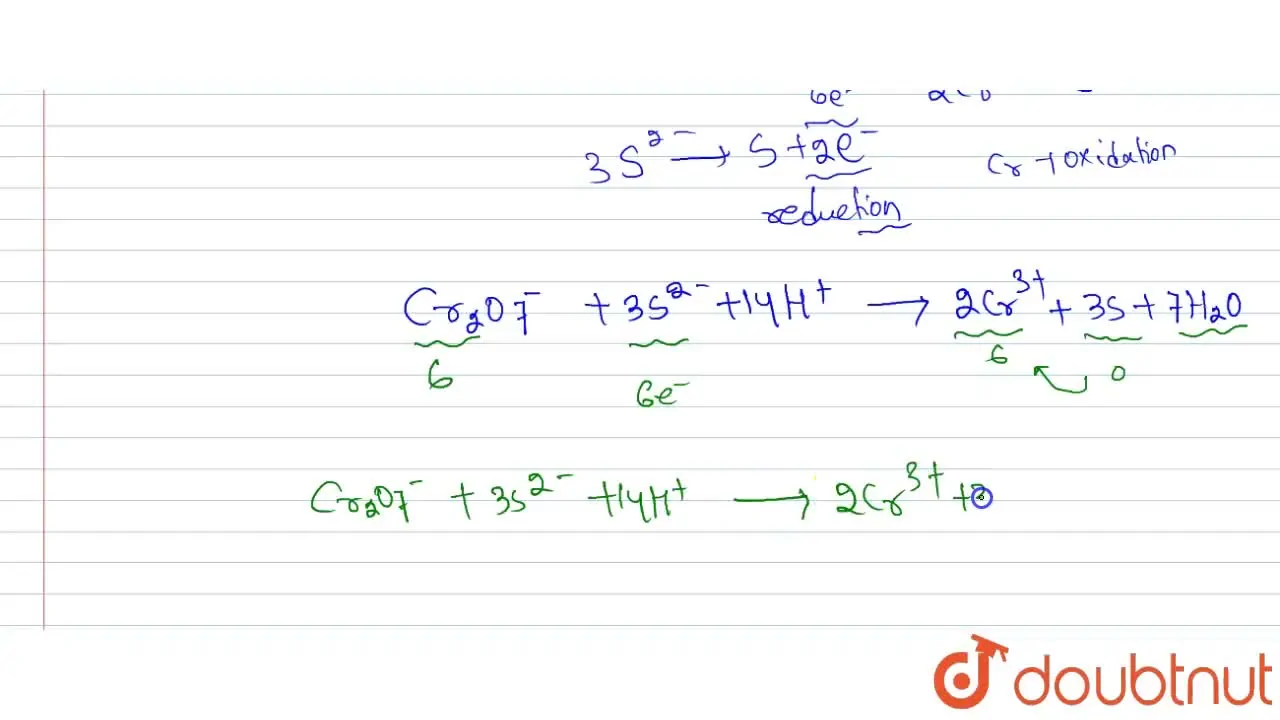 6e⁻
3S²⁻ → S + 2e⁻ Cr → oxidation
reduction
Cr₂O7⁻ + 3S²⁻ + 14H⁺ → 2Cr³⁺ + 3S + 7H₂O
6 6e⁻ 6 0
Cr₂O7⁻ + 3S²⁻ + 14H⁺ → 2Cr³⁺ +3
doubtnut